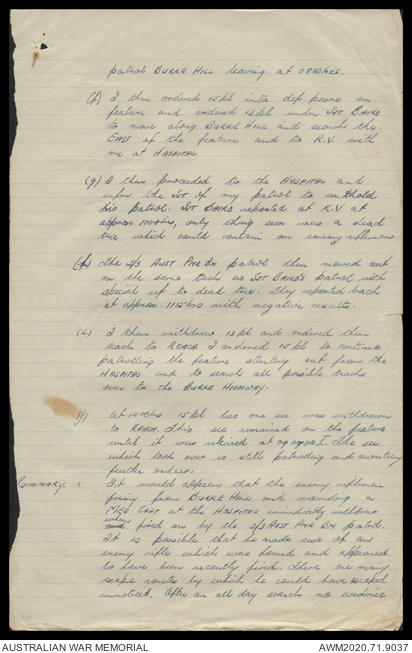 patrol BURKE HILL leaving at 0830 hrs.
(f) I then ordered 15 pl into def posns on
feature and ordered 13 pl under SJT BAIRD
to move along BURKE HILL and search the
EAST of the feature and to R.V. with
me at HOSPITAL
(g) I then proceeded to the HOSPITAL and
infm the SJT of my patrol to withhold
his patrol. SJT BAIRD reported at R.V. at
approx 1000 hrs, only thing seen was a dead
tree which could contain an enemy rifleman
(h) The 2/3 AUST PNR BN patrol then moved out
on the same task as SJT BAIRD'S patrol with
special ref to dead tree. They reported back
at approx 1115 hrs with negative results.
(i) I then withdrew 13 pl and ordered them
back to ROACH I ordered 15 pl to continue
patrolling the feature starting out from the
HOSPITAL and to search all possible tracks
over to the BURKE HIGHWAY.
(j) At 1400 hrs 15 pl less one sec was withdrawn
to ROACH. This sec remained on the feature
until it was relieved at The sec
which took over is still patrolling and awaiting
further orders.
SUMMARY : It would appear that the enemy rifleman
firing from BURKE HILL and wounding a
MED at the HOSPITAL immediately withdrew
when fired on by the 2/3 AUST PNR BN patrol.
It is possible that he made use of an
enemy rifle which was found and appeared
to have been recently fired. There are many
escape routes by which he could have escaped
unnoticed. After an all day search no evidence
AUSTRALIAN WAR MEMORIAL
AWM2020.71.9037